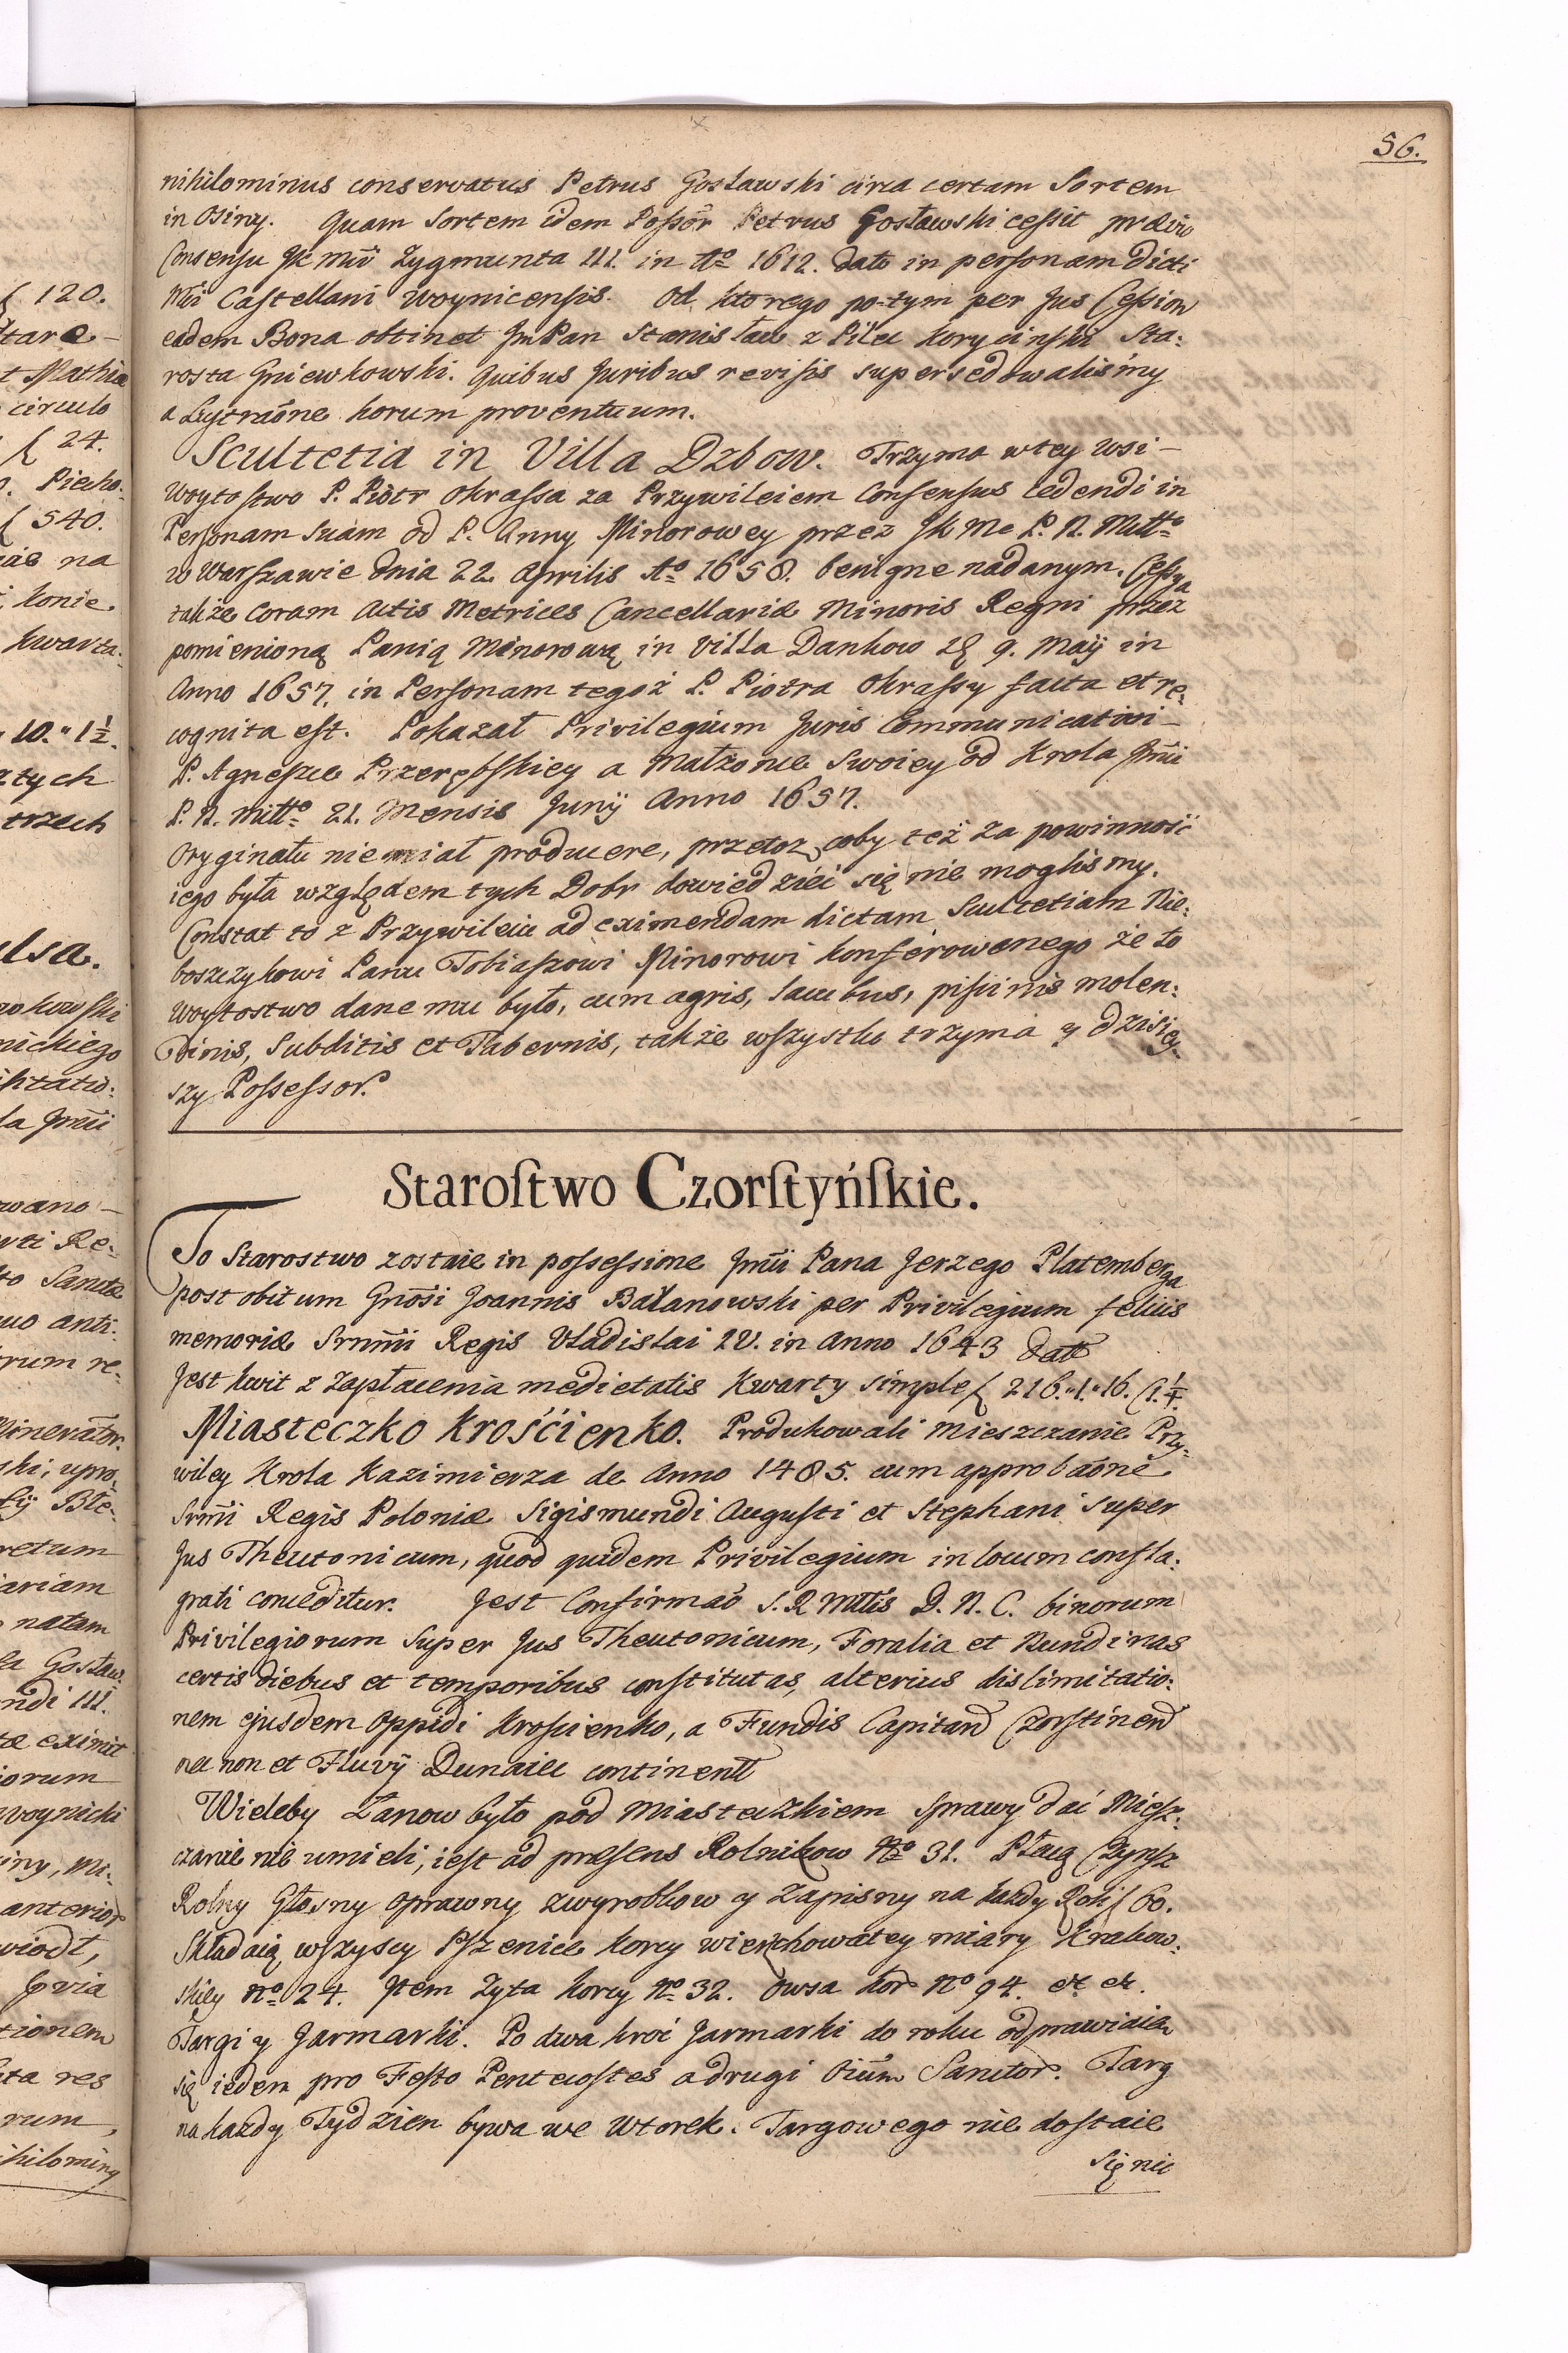 56.
nihilominus conservatus Petrus Gosławski circa certam Sortem
in Osiny. Quam Sortem idem Possor Petrus Gosławski cessit prævio
Consensu JK Mći Zygmunta III. in Aō 1612. dato in personam dicti
Mći Castellani Woynicensis. Od ktorego po-tym per Jus Cession
eadem Bona obtinet JmPan Stanisław z Pilce Koryciński Sta:
rosta Gniewkowski. Quibus Juribus revisis supersedowaliśmy
a Lustraōne horum proventuum.
Scultetia in Villa Dzbow. Trzyma w tey Wsi –
Woytostwo P. Piotr Okrassa za Przywileiem Consensus cedendi in
Personam suam od P. Anny Minorowey przez JK Me P. N. Mttō
w Warszawie dnia 22. Aprilis Aō 1658. benigne nadanym. Cessya
także Coram Actis Metrices Cancellariæ Minoris Regni przez
pomienioną Panią Minorową in Villa Dankow 9. Maÿ in
Anno 1657. in Personam tegoż P. Piotra Okrassy facta et re:
cognita est. Pokazał Privilegium Juris Communicativi –
P. Agneszce Przerębskiey a Małżonce Swoiey od Krola Jmći
P. N. Mttō 21. Mensis Junÿ Anno 1657.
Oryginału nie miał producere, przetoz coby też za powinność
iego była względem tych Dobr dowiedzieć się nie moglismy.
Constat to z Przywileiu ad eximendam dictam Scultetiam Nie:
boszczykowi Panu Tobiaszowi Minorowi konferowanego że to
Woytostwo dane mu było, cum agris, lacubus, piscinis molen:
dinis, Subditis et Tabernis, także wszystko trzyma y dzisiey:
szy Possessor.
Starostwo Czorstyńskie.
To Starostwo zostaie in possessione Jmći Pana Jerzego Platemberga
post obitum Gnōsi Joannis Bałanowski per Privilegium felicis
memoriæ Srmi Regis Vladislai IV. in Anno 1643 datt
Jest kwit z Zapłacenia medietatis Kwarty simple f 216."1."16. 1¼.
Miasteczko Krośćienko. Produkowali Mieszczanie Przy:
wiley Krola Kazimierza de Anno 1485. cum approbaōne
Srmi Regis Poloniæ Sigismundi Augusti et Stephani super
Jus Theutonicum, quod quidem Privilegium in locum confla:
grati conceditur. Jest Confirmaō S. R Mttis D. N. C. binorum
Privilegiorum super Jus Theutonicum, Foralia et Nundinas
certis diebus et temporibus constitutas, alterius dislimitatio:
nem ejusdem Oppidi Kroscienko, a Fundis Capitan Czorstinen
nec non et Fluvÿ Dunaiec continent
Wieleby Łanow było pod Miasteczkiem sprawy dać Miesz:
czanie nie umieli, iest ad præsens Rolnikow Nō 31. Płacą Czynsz
Rolny Głosny Oprawny zwyrobkow y Zapisny na każdy Rok f 60.
Składaią wszyscy Pszenice korcy wierzchowatey miary Krakow:
skiey Nō 24. Item Zyta korcy Nō 32. Owsa kor Nō 94. et et.
Targi y Jarmarki. Po dwa kroć Jarmarki do roku odprawiaią
się ieden pro Festo Pentecostes a drugi Oium Sanctor. Targ
na każdy Tydzien bywa we Wtorek. Targowego nie dostaie
się nic